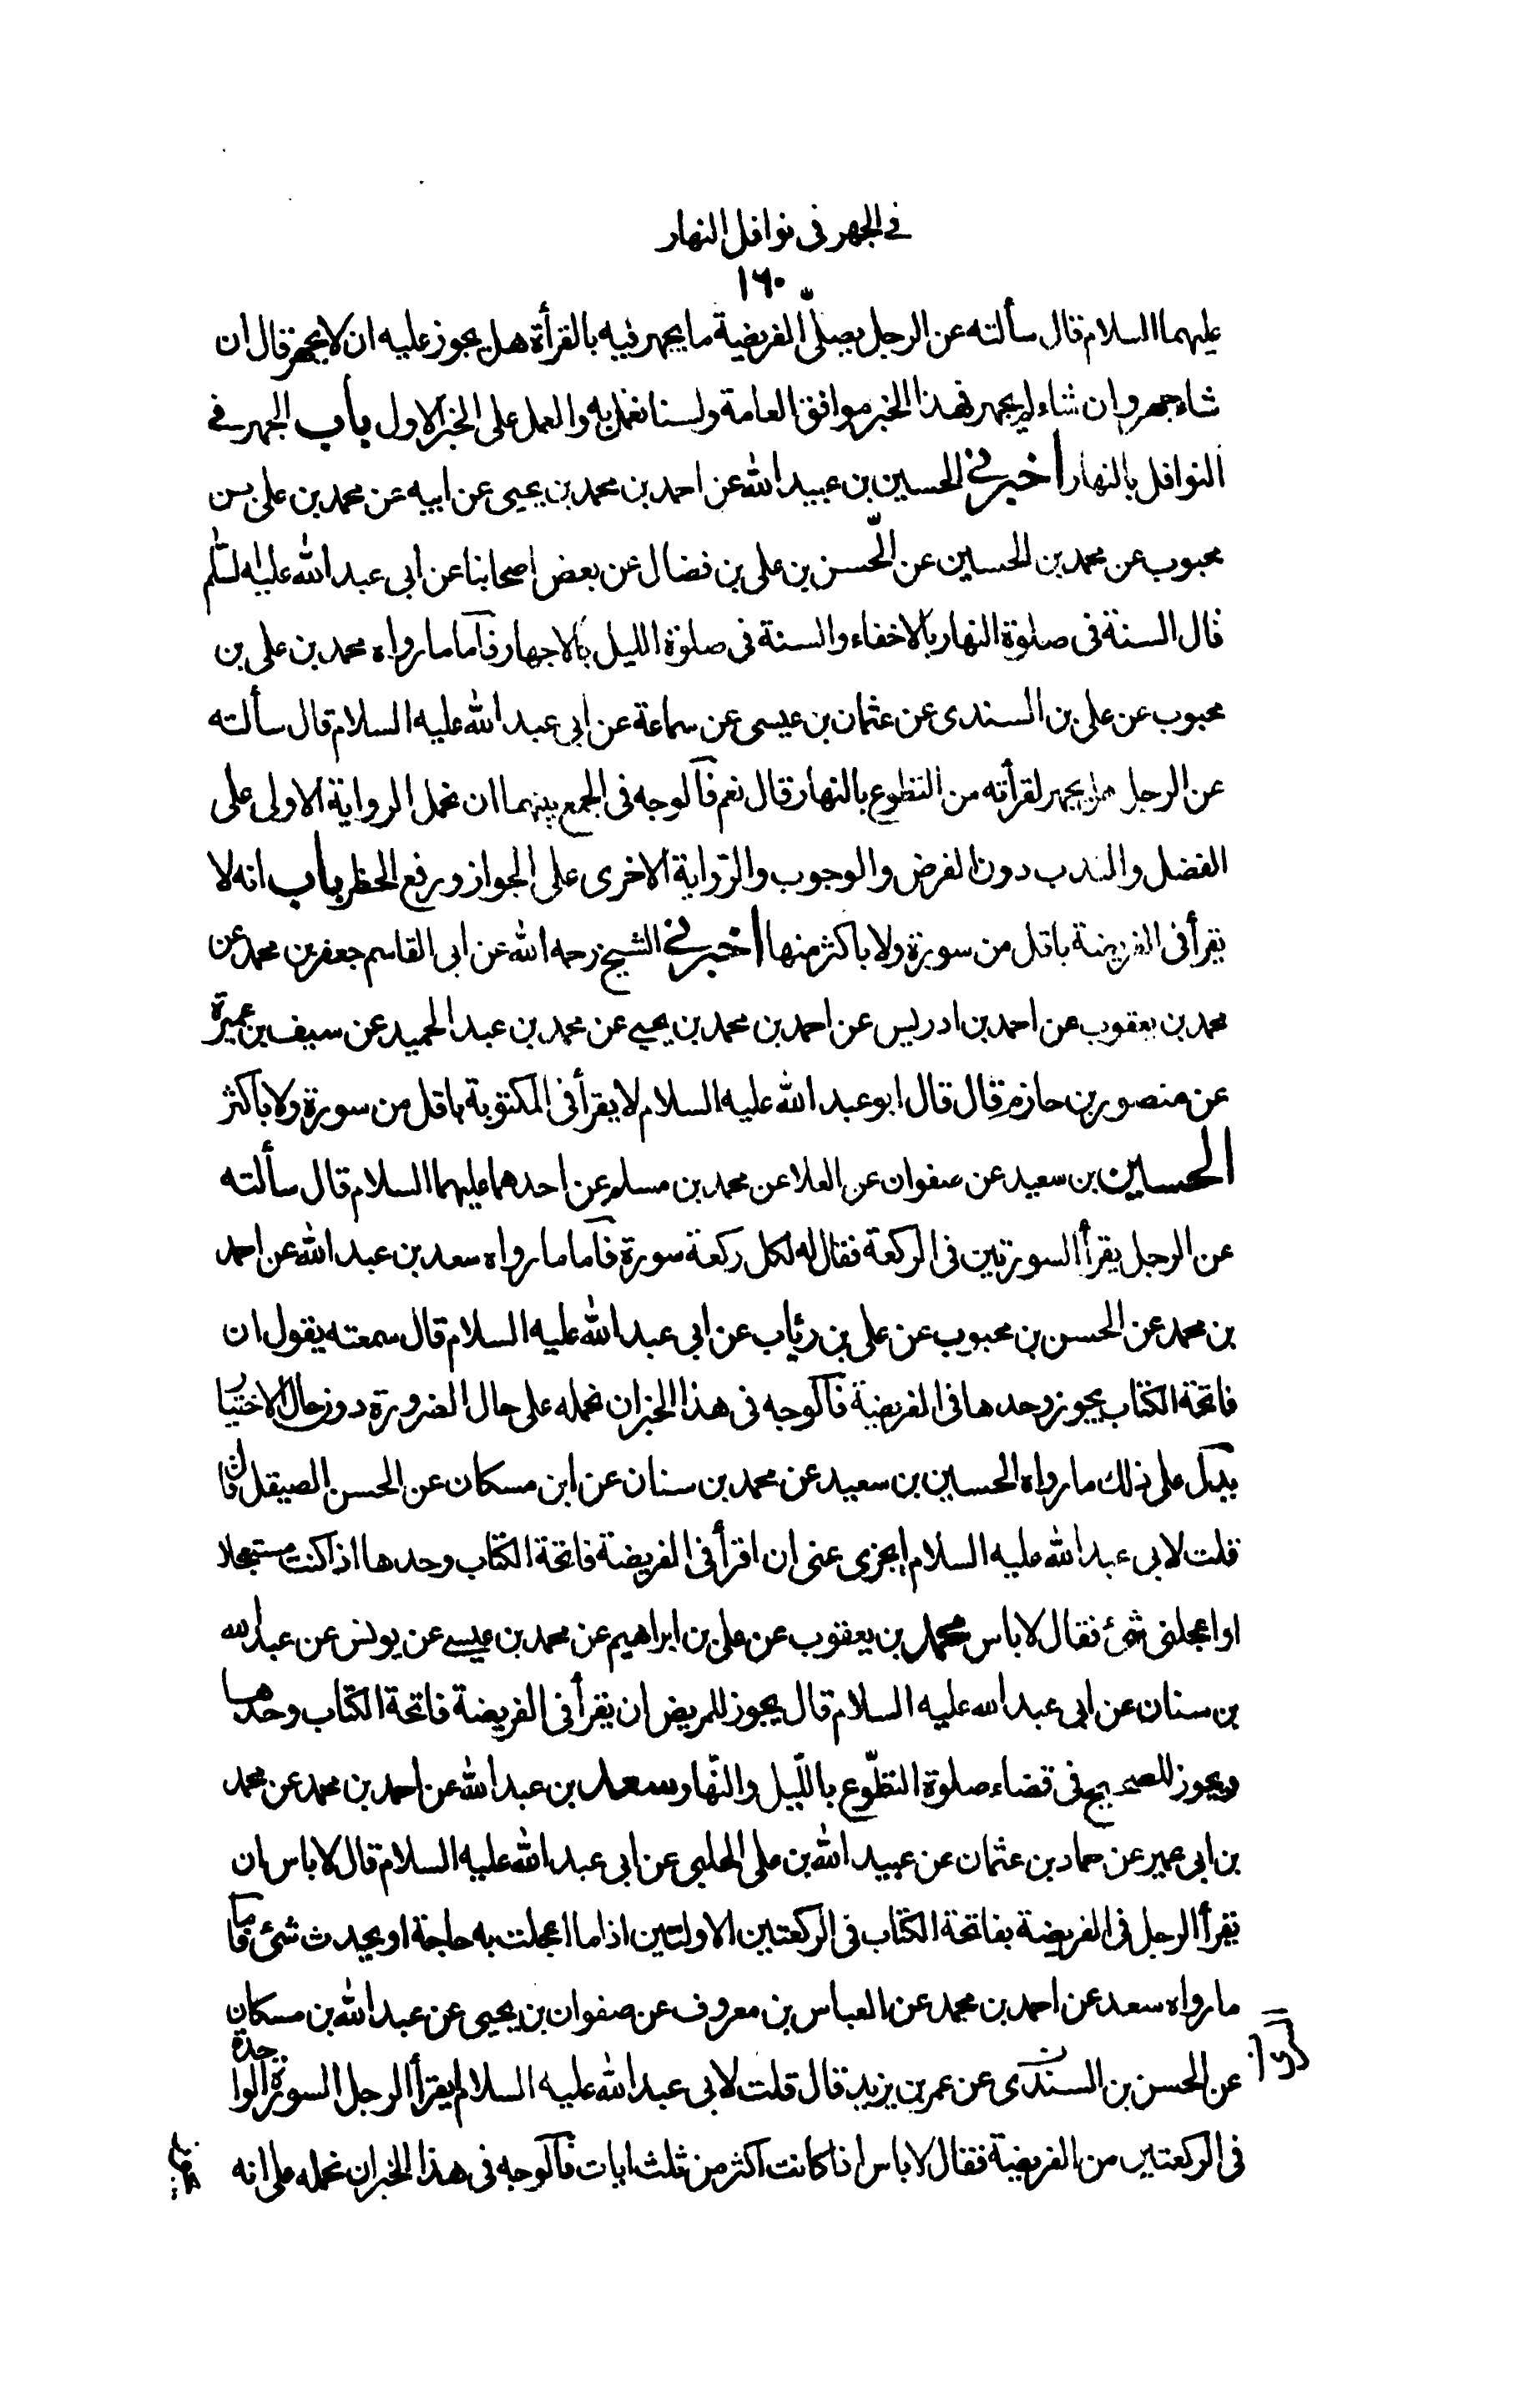 في الجهر فى نوافل النهار
١٦٠
عليهما السلام قال سألته عن الرجل يصلى الفريضة ما يجهر فيه بالقرأة هل يجوز عليه ان لا يجهر قال ان
شاء جهر وان شاء لم يجهر فهذا الخبر موافق العامة ولسنا نعمل به والعمل على الخبر الاول باب الجهر في
النوافل بالنهار اخبرني الحسين بن عبيد الله عن احمد بن محمد بن يحيى عن ابيه عن محمد بن على بن
محبوب عن محمد بن الحسين عن الحسن بن على بن فضال عن بعض اصحابنا عن ابى عبد الله عليه السلم
قال السنة فى صلوة النهار بالاخفاء والسنة فى صلوة الليل بالاجهار فاما ما رواه محمد بن على بن
محبوب عن على بن السندى عن عثمان بن عيسى عن سماعة عن ابى عبد الله عليه السلام قال سألته
عن الرجل هل يجهر لقرأته من التطوع بالنهار قال نعم فالوجه فى الجمع بينهما ان نحمل الرواية الاولى على
الفضل والندب دون الفرض والوجوب والرّواية الاخرى على الجواز ورفع الحظر باب انه لا
يقرأ فى الفريضة باقل من سورة ولا باكثر منها اخبرني الشيخ رحمه الله عن ابى القاسم جعفر بن محمد عن
محمد بن يعقوب عن احمد بن ادريس عن احمد بن محمد بن يحيى عن محمد بن عبد الحميد عن سيف بن عميرة
عن منصور بن حازم قال قال ابو عبد الله عليه السلام لا يقرأ فى المكتوبة باقل من سورة ولا باكثر
الحسين بن سعيد عن صفوان عن العلا عن محمد بن مسلم عن احدهما عليهما السلام قال سألته
عن الرجل يقرأ السورتين فى الركعة فقال له لكل ركعة سورة فاما ما رواه سعد بن عبد الله عن احمد
بن محمد عن الحسن بن محبوب عن على بن رئاب عن ابى عبد الله عليه السلام قال سمعته يقول ان
فاتحة الكتاب يجوز وحدها فى الفريضة فالوجه فى هذا الخبر ان نحمله على حال الضرورة دون حال الاختيار
يدل على ذلك ما رواه الحسين بن سعيد عن محمد بن سنان عن ابن مسكان عن الحسن الصيقل قال
قلت لابى عبد الله عليه السلام ايجزى عنى ان اقرأ فى الفريضة فاتحة الكتاب وحدها اذا كنت مستعجلا
او اعجلنى شئ فقال لا باس محمد بن يعقوب عن على بن ابراهيم عن محمد بن عيسى عن يونس عن عبد الله
بن سنان عن ابى عبد الله عليه السلام قال يجوز للمريض ان يقرأ فى الفريضة فاتحة الكتاب وحدها
ويجوز للصحيح فى قضاء صلوة التطوّع بالّليل والنّهار سعد بن عبد الله عن احمد بن محمد عن محمد
بن ابى عمير عن حماد بن عثمان عن عبيد الله بن على الحلبى عن ابى عبد الله عليه السلام قال لا باس ان
يقرأ الرجل فى الفريضة بفاتحة الكتاب فى الركعتين الاولتين اذا ما اعجلت به حاجة او يحدث شئ فاما
ما رواه سعد عن احمد بن محمد عن العباس بن معروف عن صفوان بن يحيى عن عبد الله بن مسكان
عن الحسن بن السندى عن عمر بن يزيد قال قلت لابى عبد الله عليه السلام ايقرأ الرجل السورة الواحدة
فى الركعتين من الفريضة فقال لا باس اذا كانت اكثر من ثلث ايات فالوجه فى هذا الخبر ان نحمله على انه